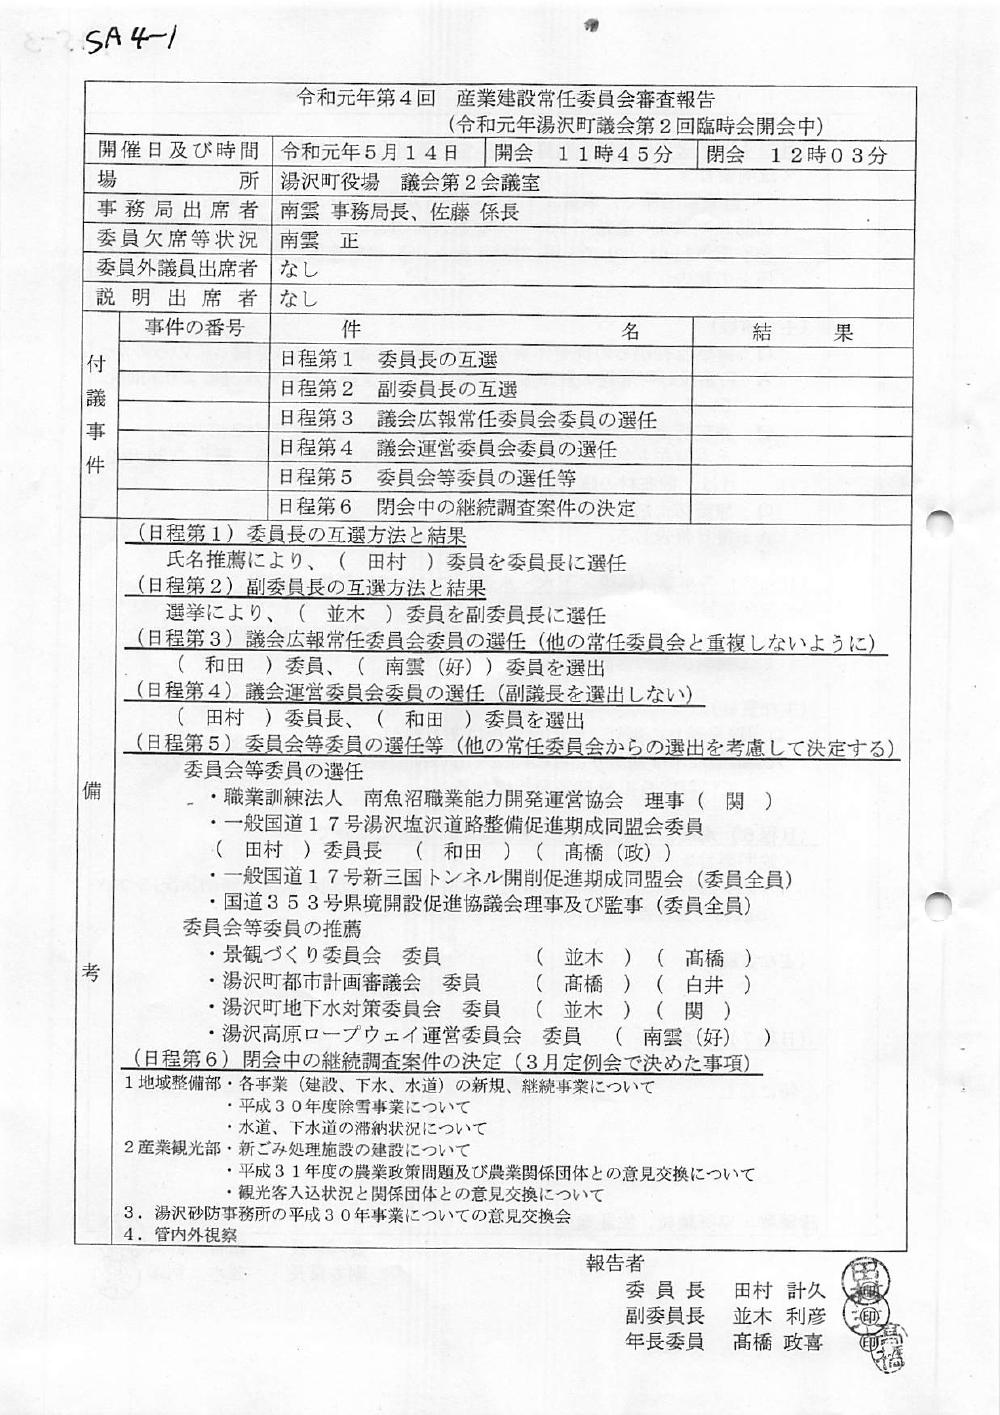 SA4-1
令和元年第4回　産業建設常任委員会審査報告
(令和元年湯沢町議会第2回臨時会開会中)
開催日及び時間　令和元年5月14日　開会　11時45分　閉会　12時03分
場　所　湯沢町役場　議会第2会議室
事務局出席者　南雲 事務局長、佐藤 係長
委員欠席等状況　南雲　正
委員外議員出席者　なし
説明出席者　なし
付議事件　事件の番号　件　名　結　果
日程第1　委員長の互選
日程第2　副委員長の互選
日程第3　議会広報常任委員会委員の選任
日程第4　議会運営委員会委員の選任
日程第5　委員会等委員の選任等
日程第6　閉会中の継続調査案件の決定
備考
(日程第1) 委員長の互選方法と結果
氏名推薦により、(　田村　) 委員を委員長に選任
(日程第2) 副委員長の互選方法と結果
選挙により、(　並木　) 委員を副委員長に選任
(日程第3) 議会広報常任委員会委員の選任 (他の常任委員会と重複しないように)
(　和田　) 委員、(　南雲 (好) ) 委員を選出
(日程第4) 議会運営委員会委員の選任 (副議長を選出しない)
(　田村　) 委員長、(　和田　) 委員を選出
(日程第5) 委員会等委員の選任等 (他の常任委員会からの選出を考慮して決定する)
委員会等委員の選任
・職業訓練法人　南魚沼職業能力開発運営協会　理事 (　関　)
・一般国道17号湯沢塩沢道路整備促進期成同盟会委員
(　田村　) 委員長　(　和田　)　(　髙橋 (政) )
・一般国道17号新三国トンネル開削促進期成同盟会 (委員全員)
・国道353号県境開設促進協議会理事及び監事 (委員全員)
委員会等委員の推薦
・景観づくり委員会　委員　(　並木　)　(　髙橋　)
・湯沢町都市計画審議会　委員　(　髙橋　)　(　白井　)
・湯沢町地下水対策委員会　委員　(　並木　)　(　関　)
・湯沢高原ロープウェイ運営委員会　委員　(　南雲 (好)　)
(日程第6) 閉会中の継続調査案件の決定 (3月定例会で決めた事項)
1地域整備部・各事業 (建設、下水、水道) の新規、継続事業について
・平成30年度除雪事業について
・水道、下水道の滞納状況について
2産業観光部・新ごみ処理施設の建設について
・平成31年度の農業政策問題及び農業関係団体との意見交換について
・観光客入込状況と関係団体との意見交換について
3．湯沢砂防事務所の平成30年事業についての意見交換会
4．管内外視察
報告者
委員長　田村　計久　㊞
副委員長　並木　利彦　㊞
年長委員　髙橋　政喜　㊞